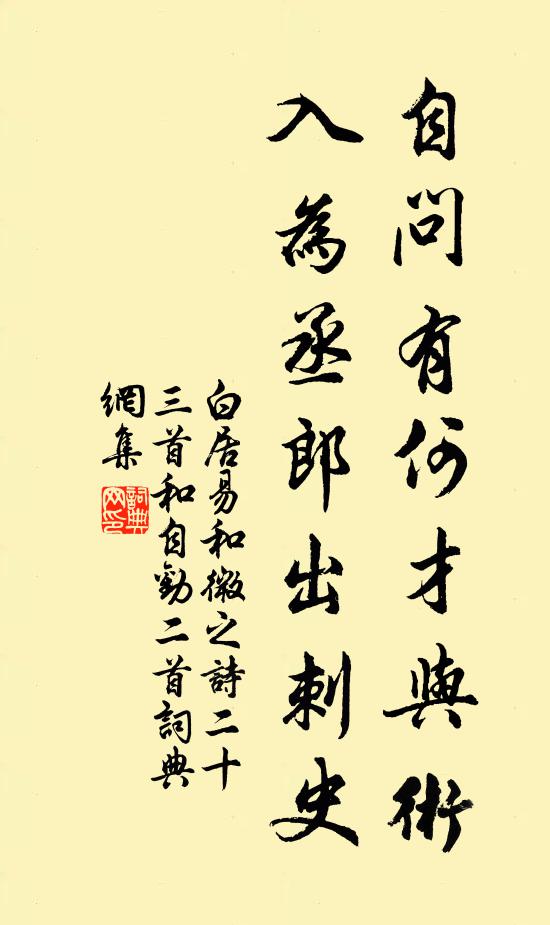 自問有何才與術
入為丞郎出刺史
白居易和微之詩二十
三首和自勸二首詞典
網集
詞典
网印